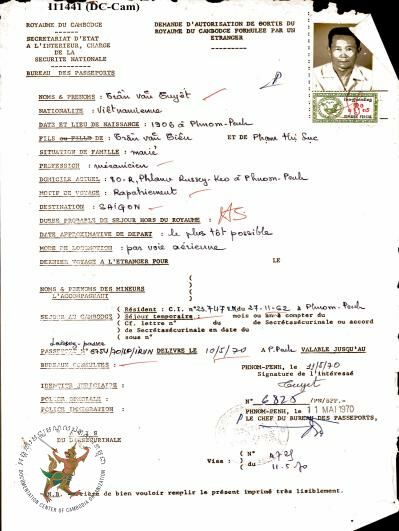 111441 (DC-Cam)
ROYAUME DU CAMBODGE
SECRETARIAT D'ETAT
A L'INTERIEUR, CHARGE
DE LA
SECURITE NATIONALE
BUREAU DES PASSEPORTS
DEMANDE D'AUTORISATION DE SORTIE DU
ROYAUME DU CAMBODGE FORMULEE PAR UN
ETRANGER
NOMS & PRENOMS : Trần văn Tuyết
NATIONALITE : Vietnamienne
DATE ET LIEU DE NAISSANCE : 1906 à Phnom-Penh
FILS ou FILLE DE : Trần văn Biên ET DE Phạm thị Suc
SITUATION DE FAMILLE : marié
PROFESSION : mécanicien
DOMICILE ACTUEL : 30.R, Phlauv Russey-Keo à Phnom-Penh
MOTIF DE VOYAGE : Rapatriement
DESTINATION : SAÏGON
DUREE PROBABLE DU SEJOUR HORS DU ROYAUME : AS
DATE APPROXIMATIVE DE DEPART : le plus tôt possible
MODE DE LOCOMOTION : par voie aérienne
DERNIER VOYAGE A L'ETRANGER POUR LE
NOMS & PRENOMS DES MINEURS
L'ACCOMPAGNANT
SEJOUR AU CAMBODGE
( Résident : C.I. n° 23.747 du 27-11-62 à Phnom-Penh
( Séjour temporaire : mois ou an à compter du
( Cf. lettre n° du de Secrétasécurinale ou accord
( de Secrétasécurinale en date du
( sous n°
Laissez-passer
PASSEPORT N° DELIVRE LE 10/5/70 A P.Penh VALABLE JUSQU'AU
BUREAUX CONSULTES :
IDENTITE JUDICIAIRE :
POLICE GENERALE :
POLICE IMMIGRATION :
PHNOM-PENH, le 11/5/70
Signature de l'intéressé
Tuyết
N° 6825 /PR/SPP.-
PHNOM-PENH, le 11 MAI 1970
LE CHEF DU BUREAU DES PASSEPORTS,
DU
Visa : ( N° A721
( du 11.5.70
DOCUMENTATION CENTER OF CAMBODIA ORGANIZATION
N.B. Prière de bien vouloir remplir le présent imprimé très lisiblement.